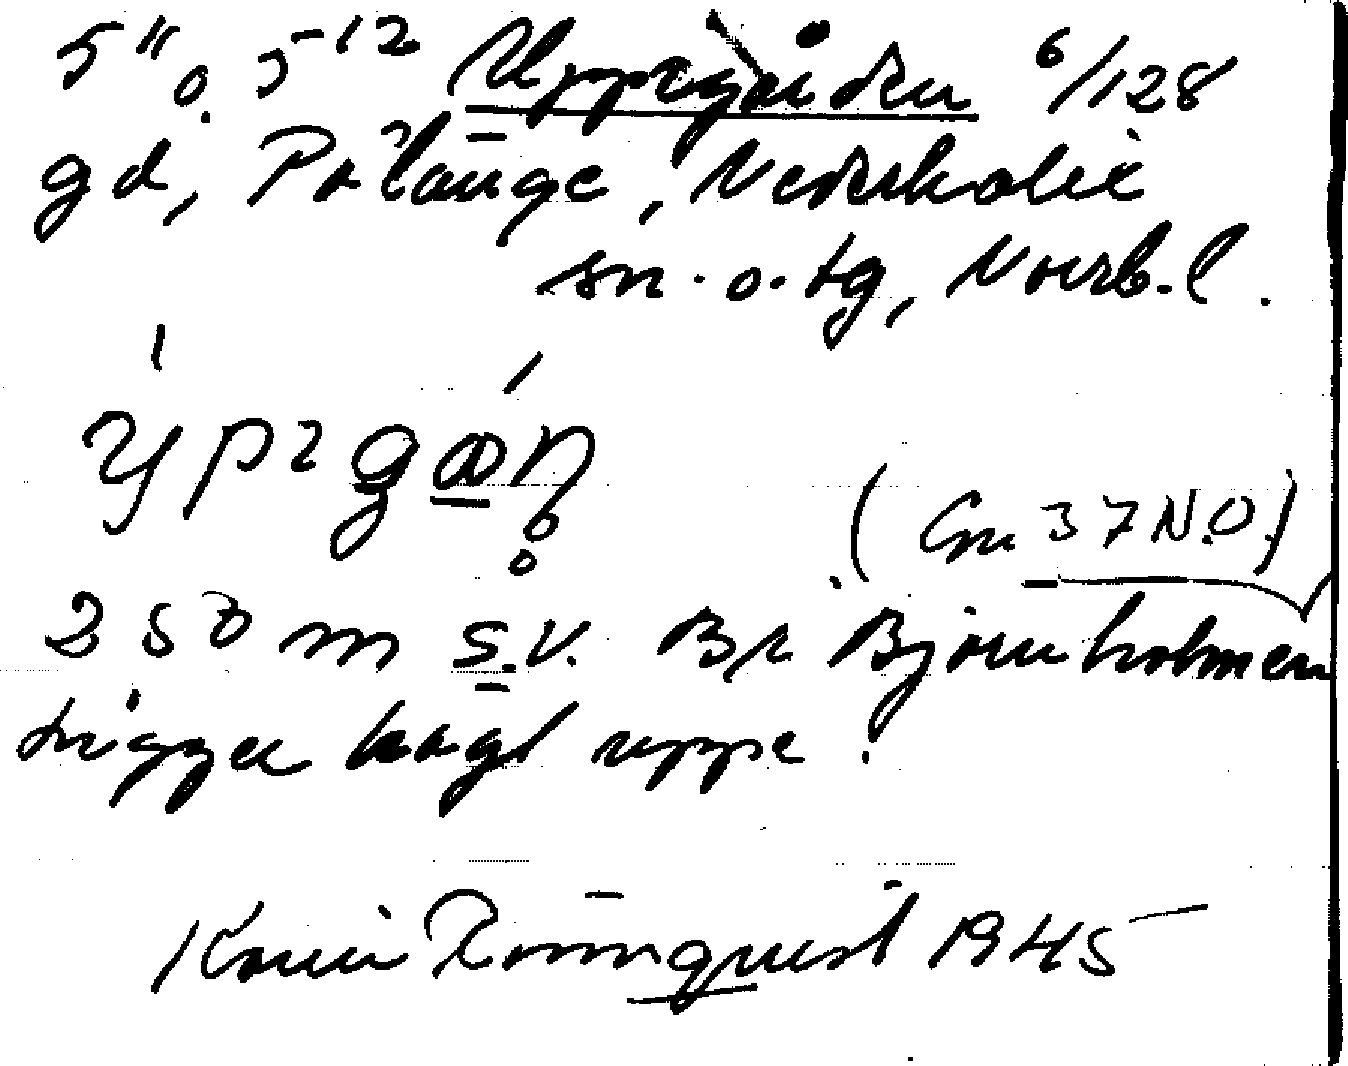 5¹¹ o. 5¹² Uppgården 6/128
gd, Pålänge, Nederkalix
sn. o. tg, Norrb. l.
(Gm 37 N.O.)
250 m S.V. Br Björnholmen
ligger högt uppe.
Karin Rönnquist 1945